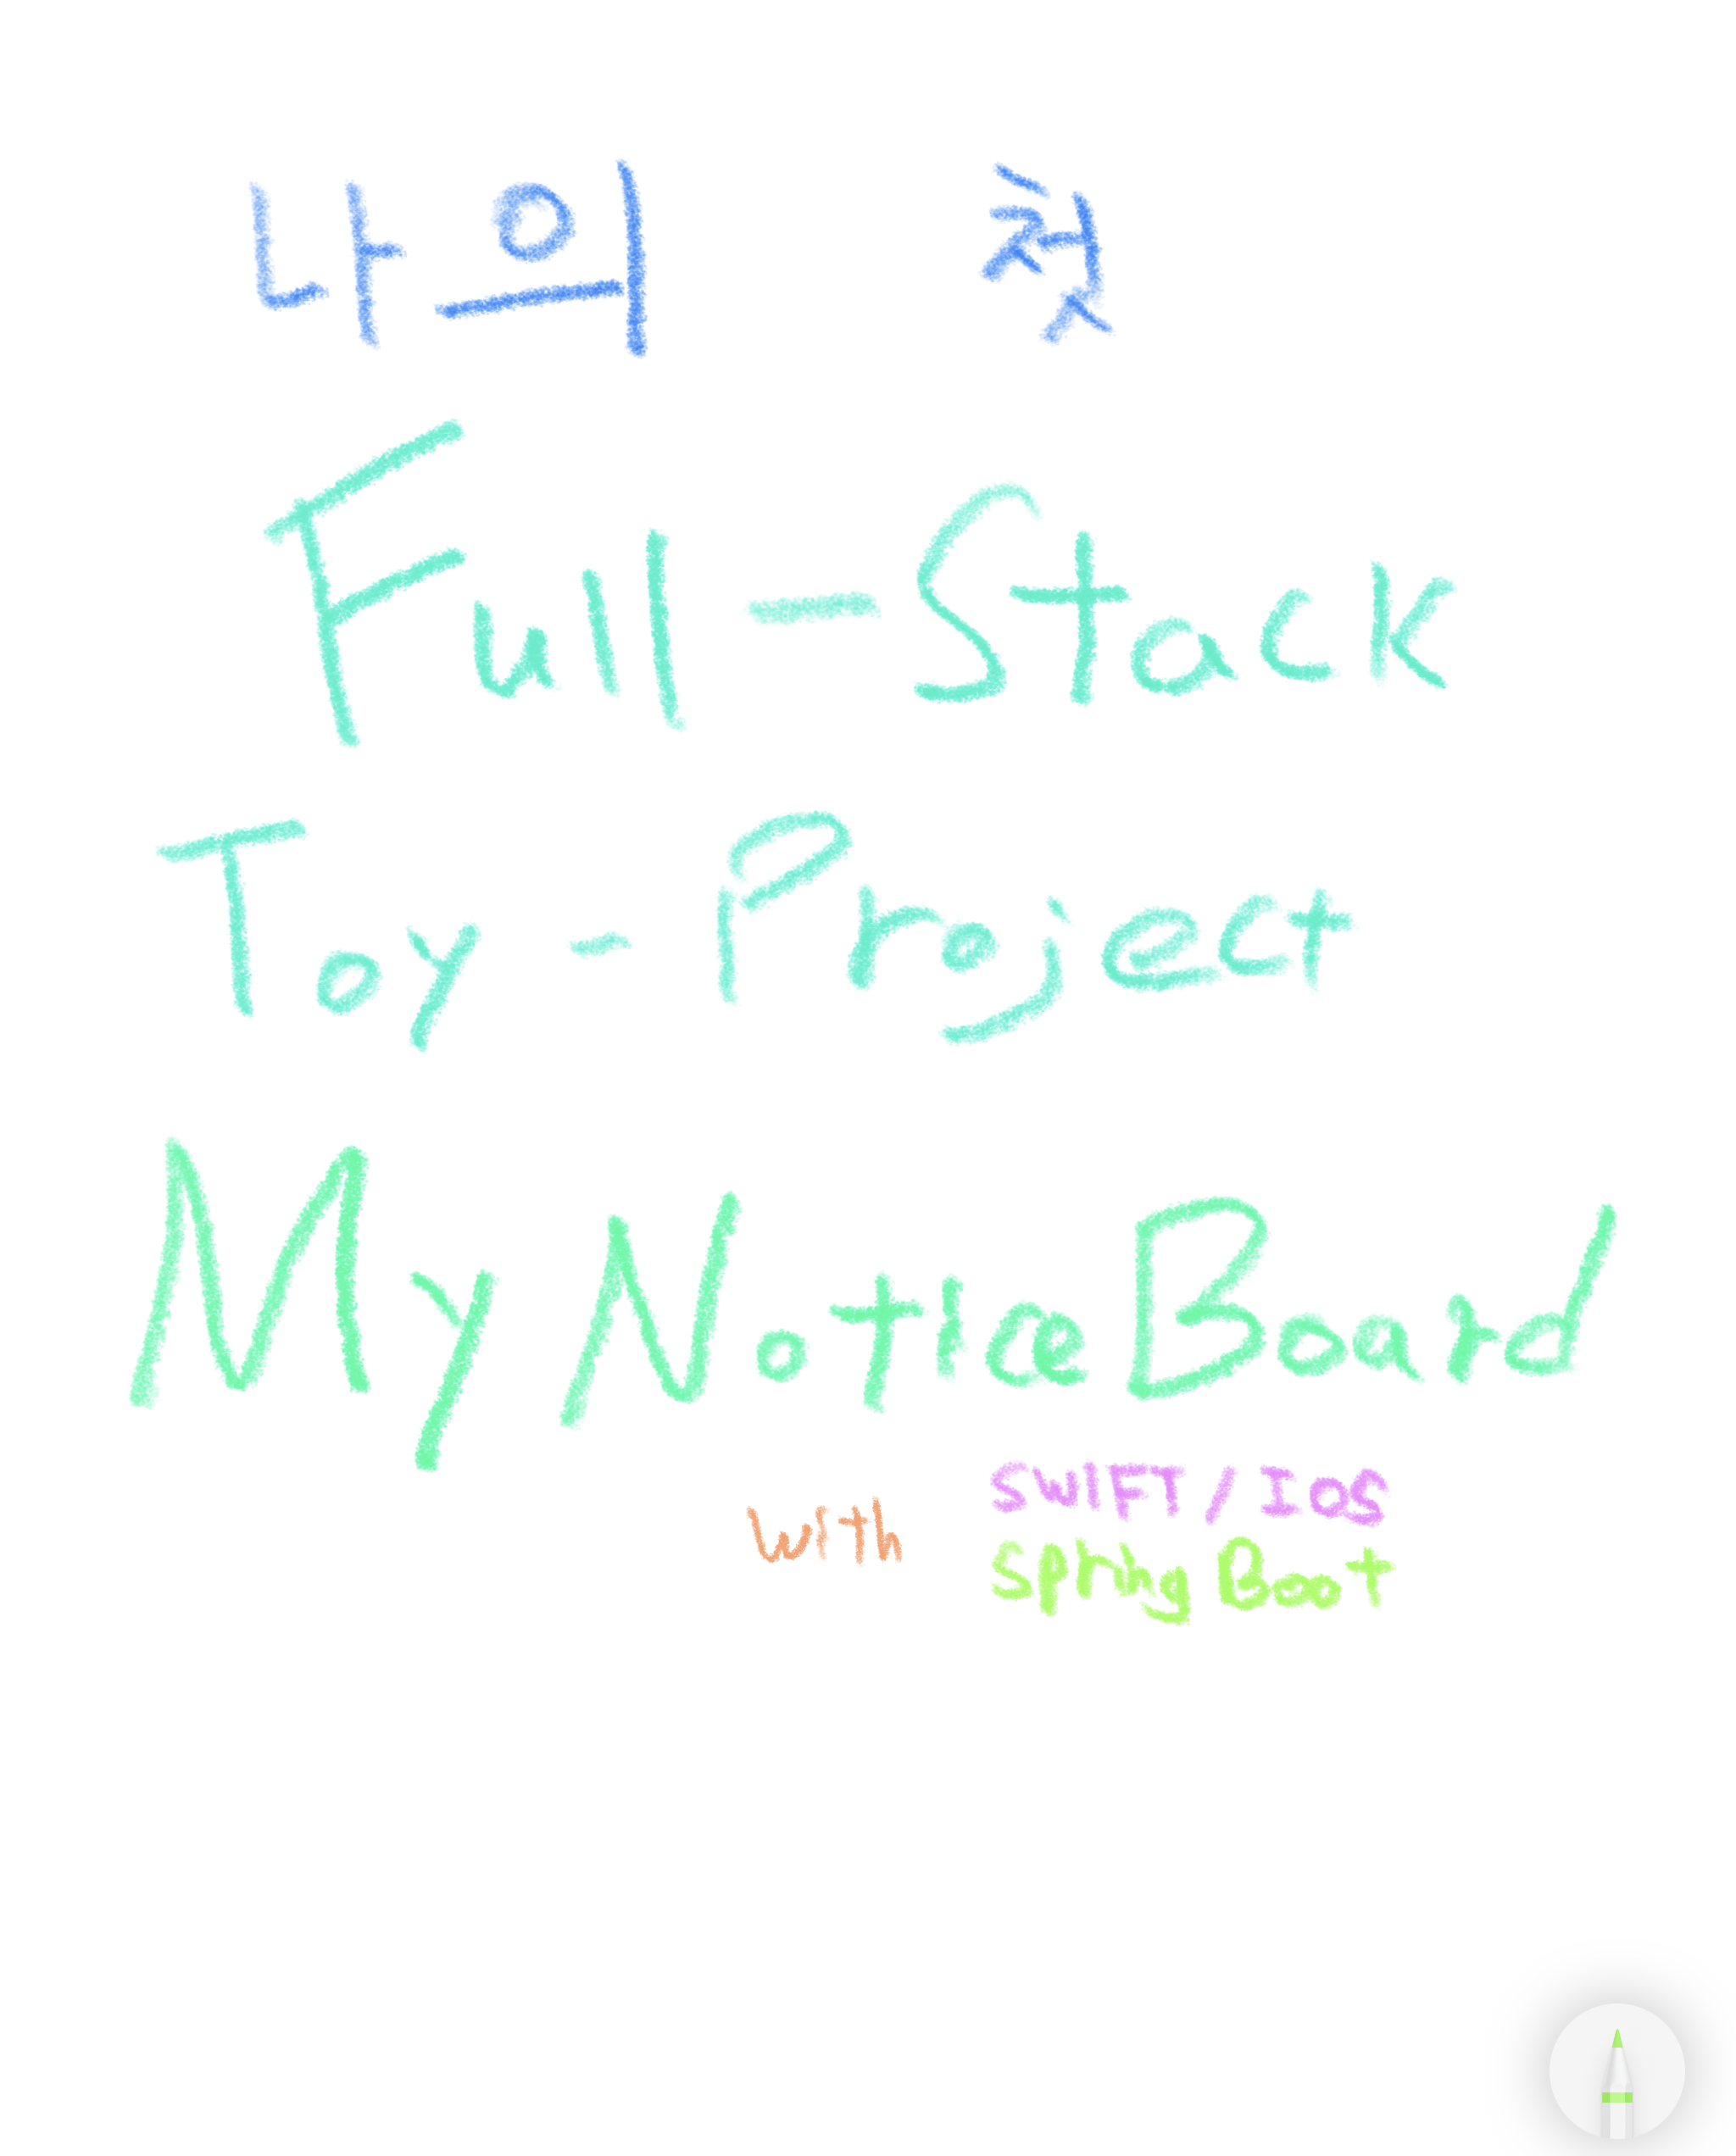 나의 첫
Full-Stack
Toy-Project
My Notice Board
with
SWIFT/IOS
Spring Boot